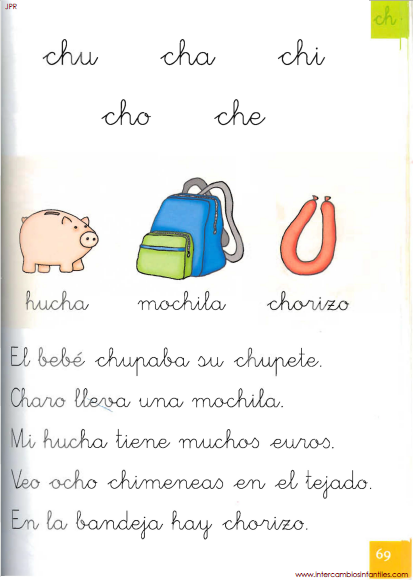 JPR
ch
chu cha chi
cho che
hucha mochila chorizo
El bebé chupaba su chupete.
Charo lleva una mochila.
Mi hucha tiene muchos euros.
Veo ocho chimeneas en el tejado.
En la bandeja hay chorizo.
69
www.intercambiosinfantiles.com